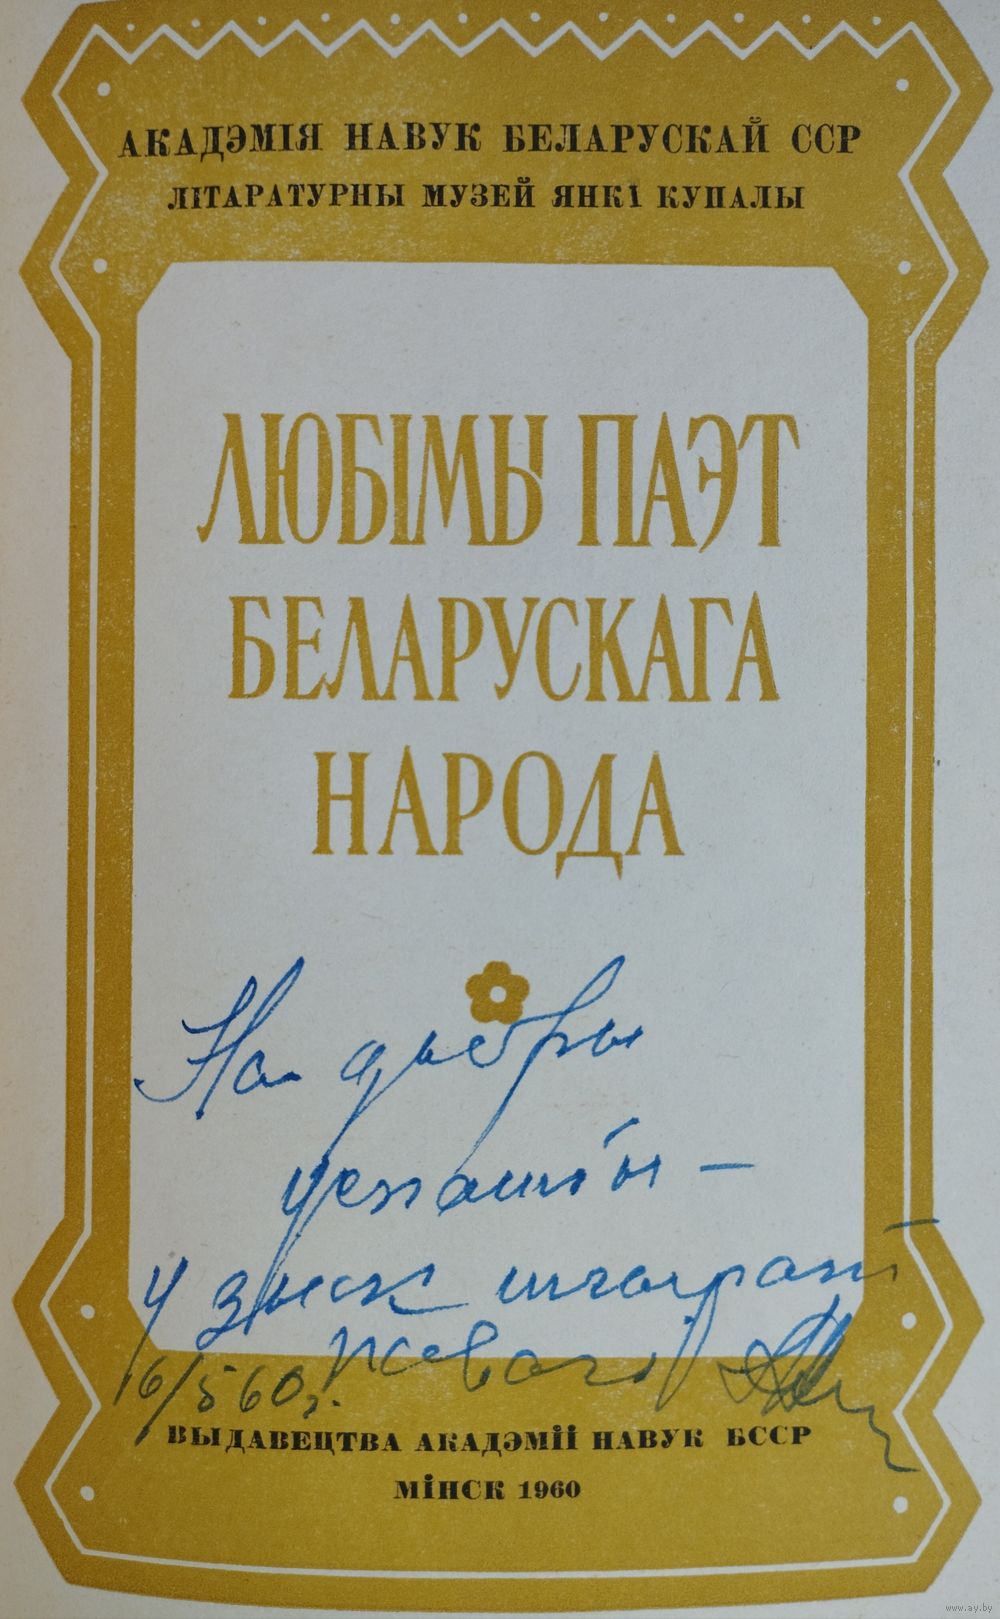 АКАДЭМІЯ НАВУК БЕЛАРУСКАЙ ССР
ЛІТАРАТУРНЫ МУЗЕЙ ЯНКІ КУПАЛЫ
ЛЮБІМЫ ПАЭТ
БЕЛАРУСКАГА
НАРОДА
На добры
успамін –
у знак шчырай
6/5 60 г.
ВЫДАВЕЦТВА АКАДЭМІІ НАВУК БССР
МІНСК 1960
www.ay.by